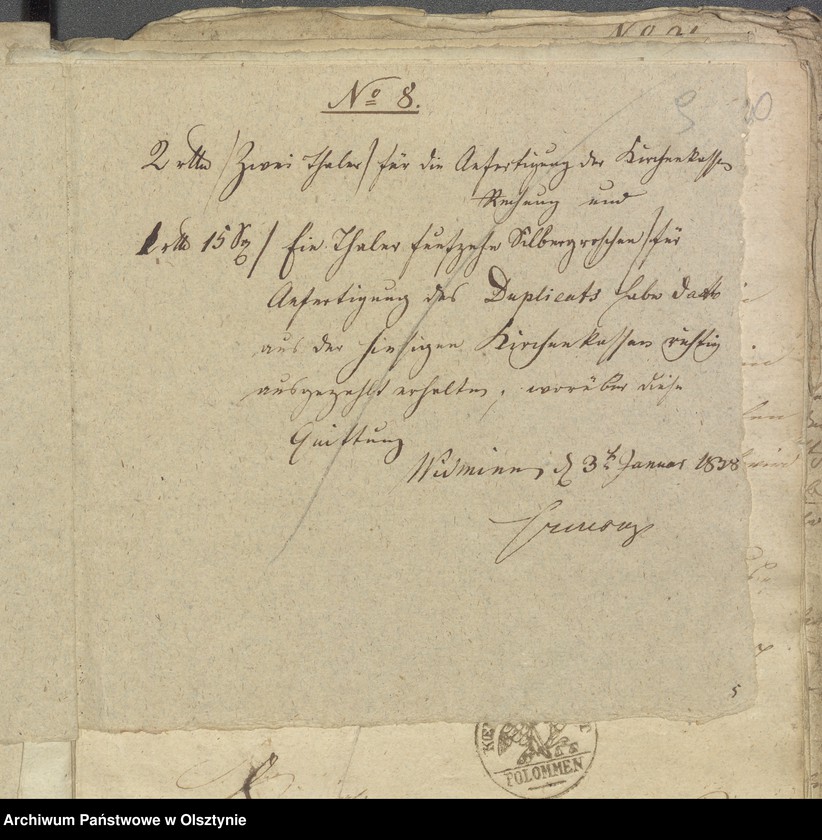 No 8.
2 rtlr /Zwei Thaler/ für die Anfertigung der Kirchenkassen
Rechnung und
1 rtlr 15 Sg / Ein Thaler funfzehn Silbergroschen / für
Anfertigung des Duplicats habe
aus der hiesigen Kirchenkassen richtig
ausgezahlt erhalten, worüber diese
Quittung
Widminnen d 3t Januar 1838
5
POLOMMEN
Archiwum Państwowe w Olsztynie